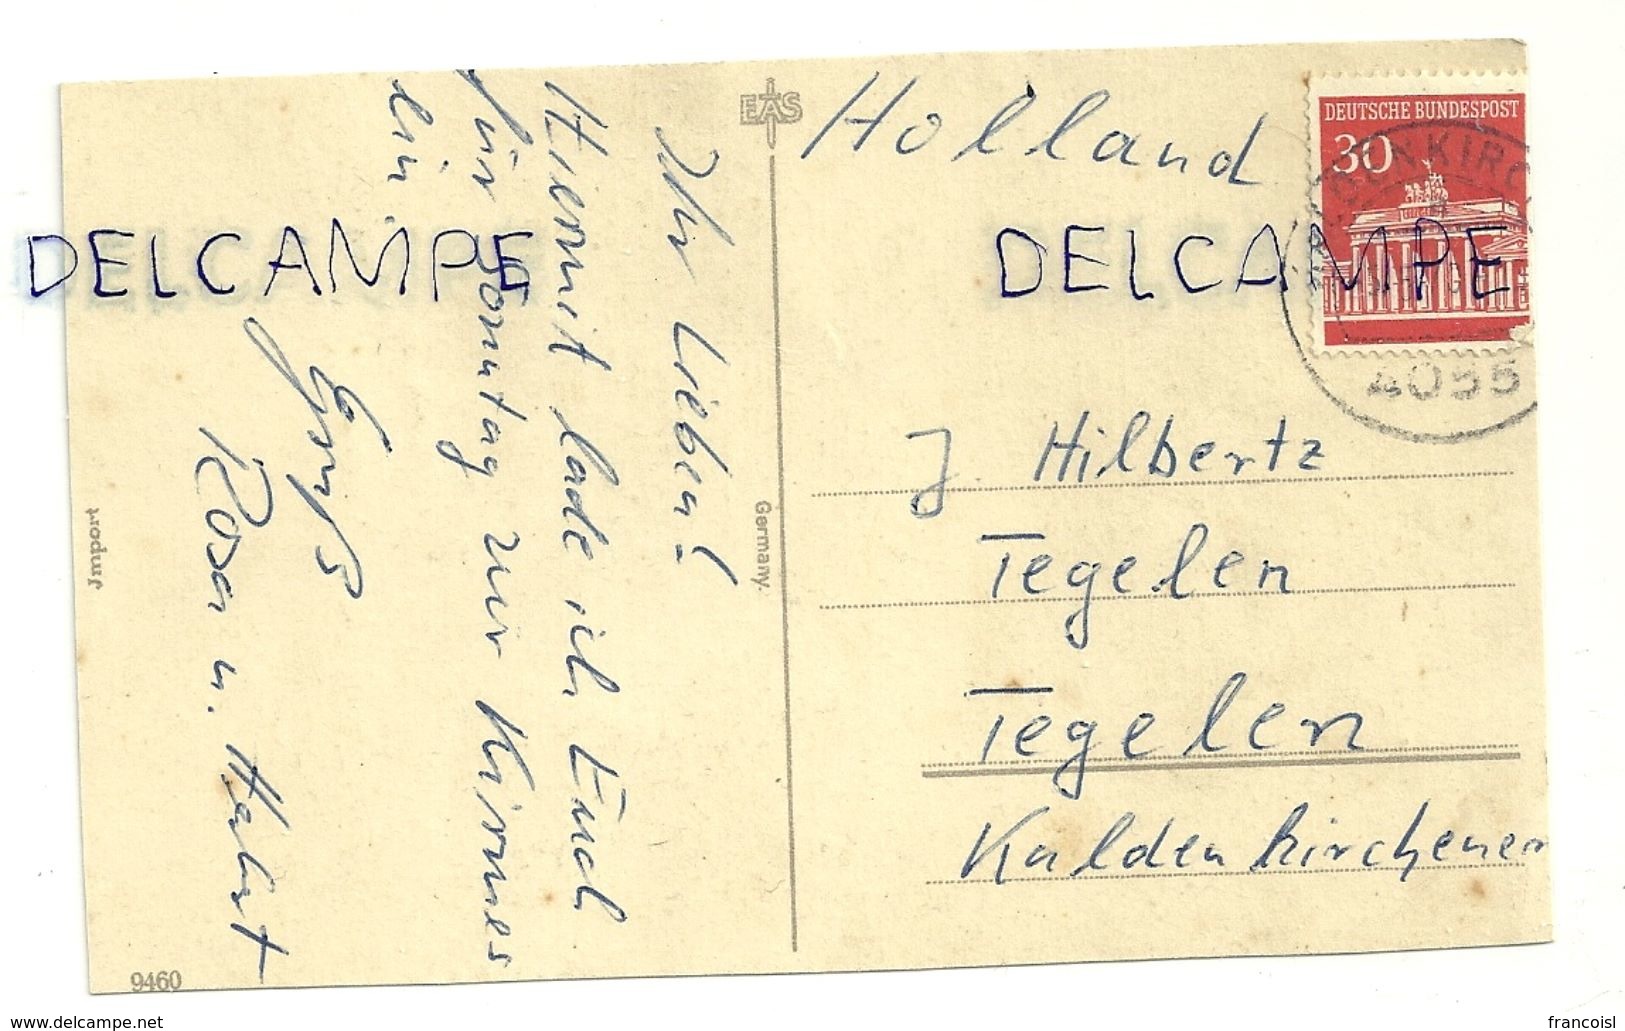 Ihr Lieben!
Hiermit lade ich Euch
für Sonntag zur Kirmes
ein.
Gruß
Rosa u. Herbert
Import
9460
EAS
Germany.
Holland
DEUTSCHE BUNDESPOST
30
DENKIRC
4055
J Hilbertz
Tegelen
Tegelen
Kaldenkirchener
DELCAMPE
DELCAMPE
www.delcampe.net
francoisl